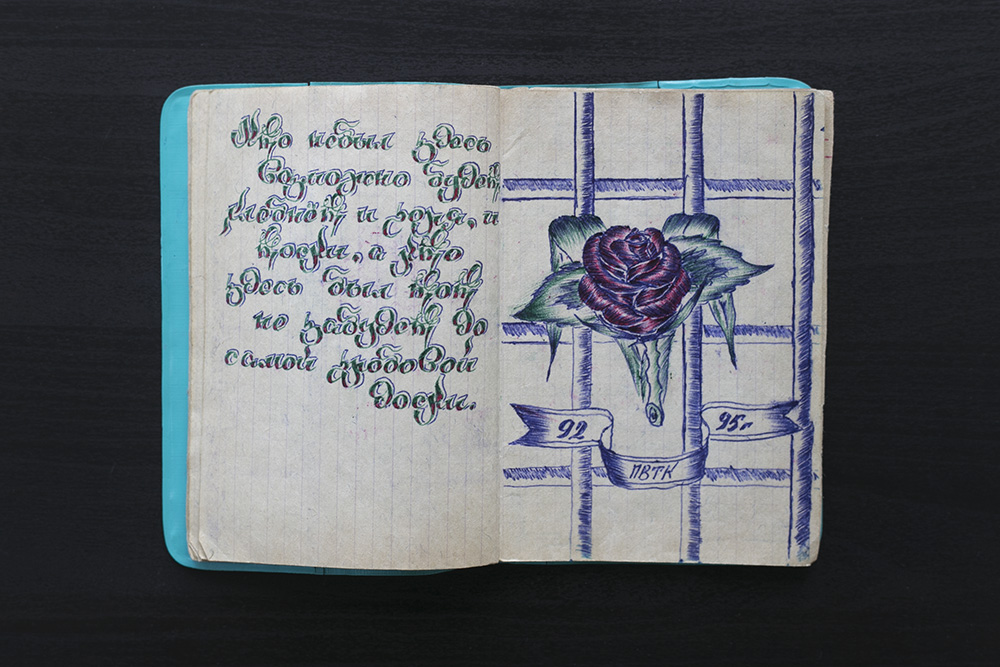 Кто небыл здесь
возможно будет
хлебнёт и горя, и
тоски, а кто
здесь был тот
не забудет до
самой гробовой
доски.
92 95г
ПВТК